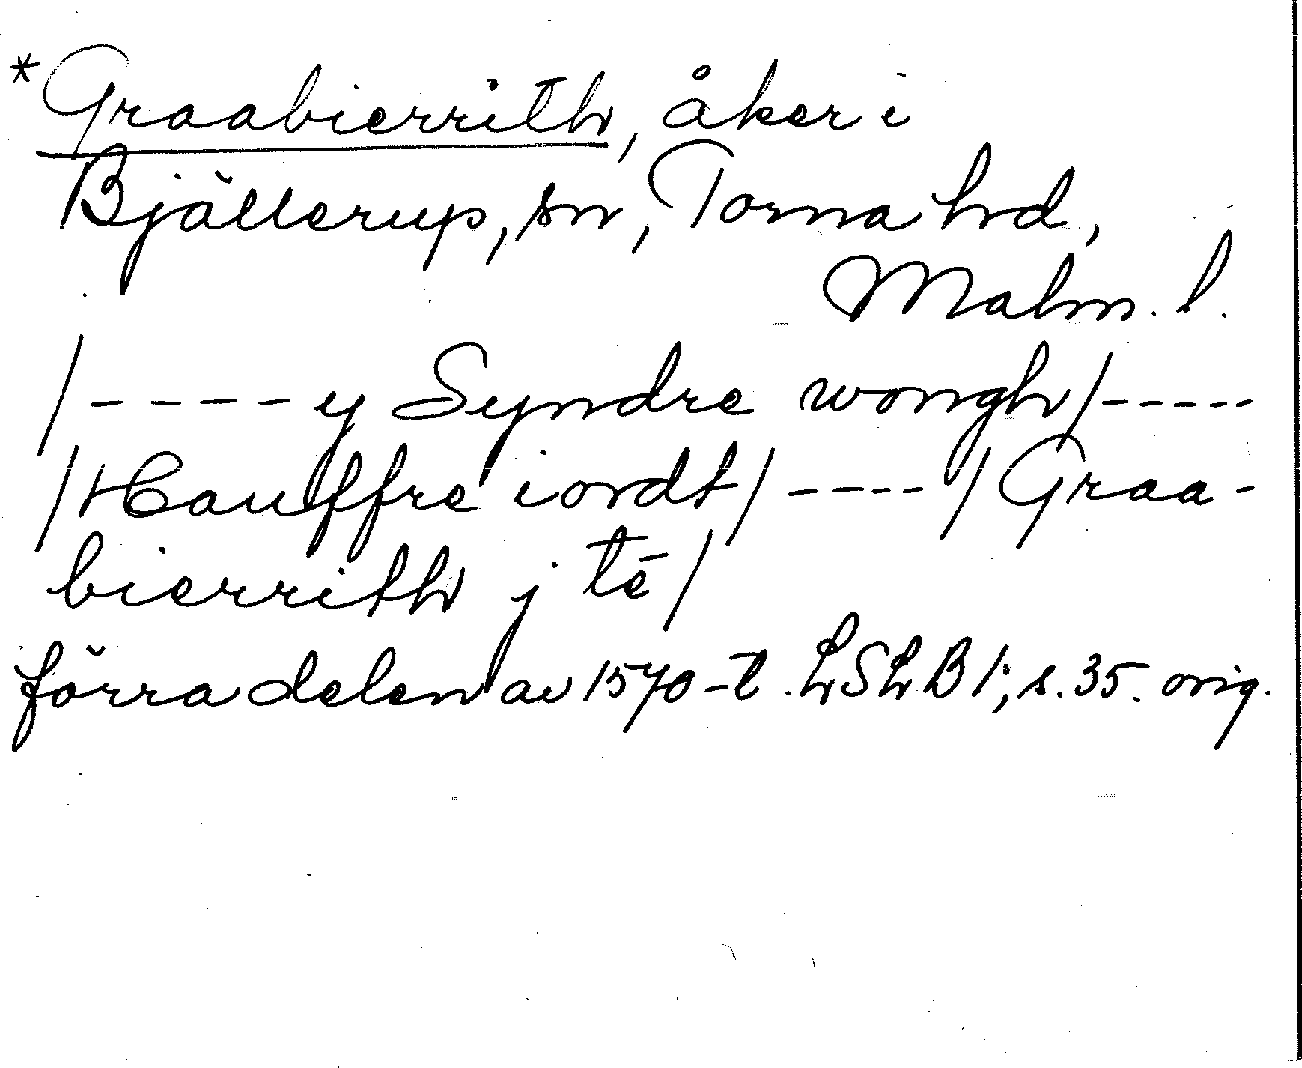 *Graabierrith, åker i
Bjällerup, sn, Torna hrd,
Malm. l.
/----- y Syndre wongh/-----
/Hauffre iordt/----/Graa-
bierrith j tē/
förra delen av 1570-t. LSLB 1; s. 35. orig.